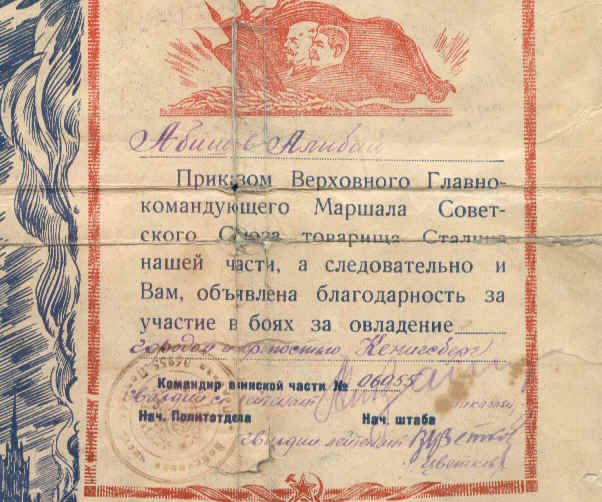 Абишев Алибай
Приказом Верховного Главно-
командующего Маршала Совет-
ского Союза товарища Сталина
нашей части, а следовательно и
Вам, объявлена благодарность за
участие в боях за овладение
городом и крепостью Кенигсберг
Командир воинской части № 06055
гвардии
Нач. Политотдела Нач. штаба
гвардии лейтенант
Цветков